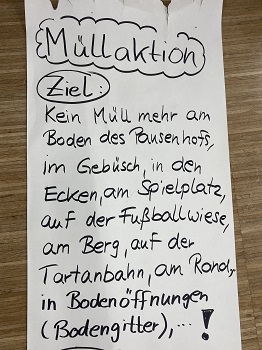 Müllaktion
Ziel:
Kein Müll mehr am
Boden des Pausenhofs,
im Gebüsch, in den
Ecken, am Spielplatz,
auf der Fußballwiese,
am Berg, auf der
Tartanbahn, am Rondo,
in Bodenöffnungen
(Bodengitter), ... !